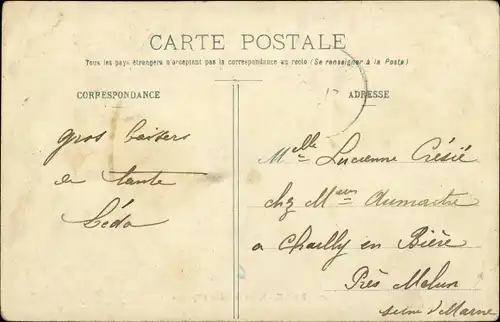 CARTE POSTALE
Tous les pays étrangers n'acceptant pas la correspondance au recto (Se renseigner à la Poste)
CORRESPONDANCE
ADRESSE
gros baisers
de tante
Léda
Melle Lucienne Crésié
chez Mr Aumaitre
a Chailly en Bière
Près Melun
Seine et Marne